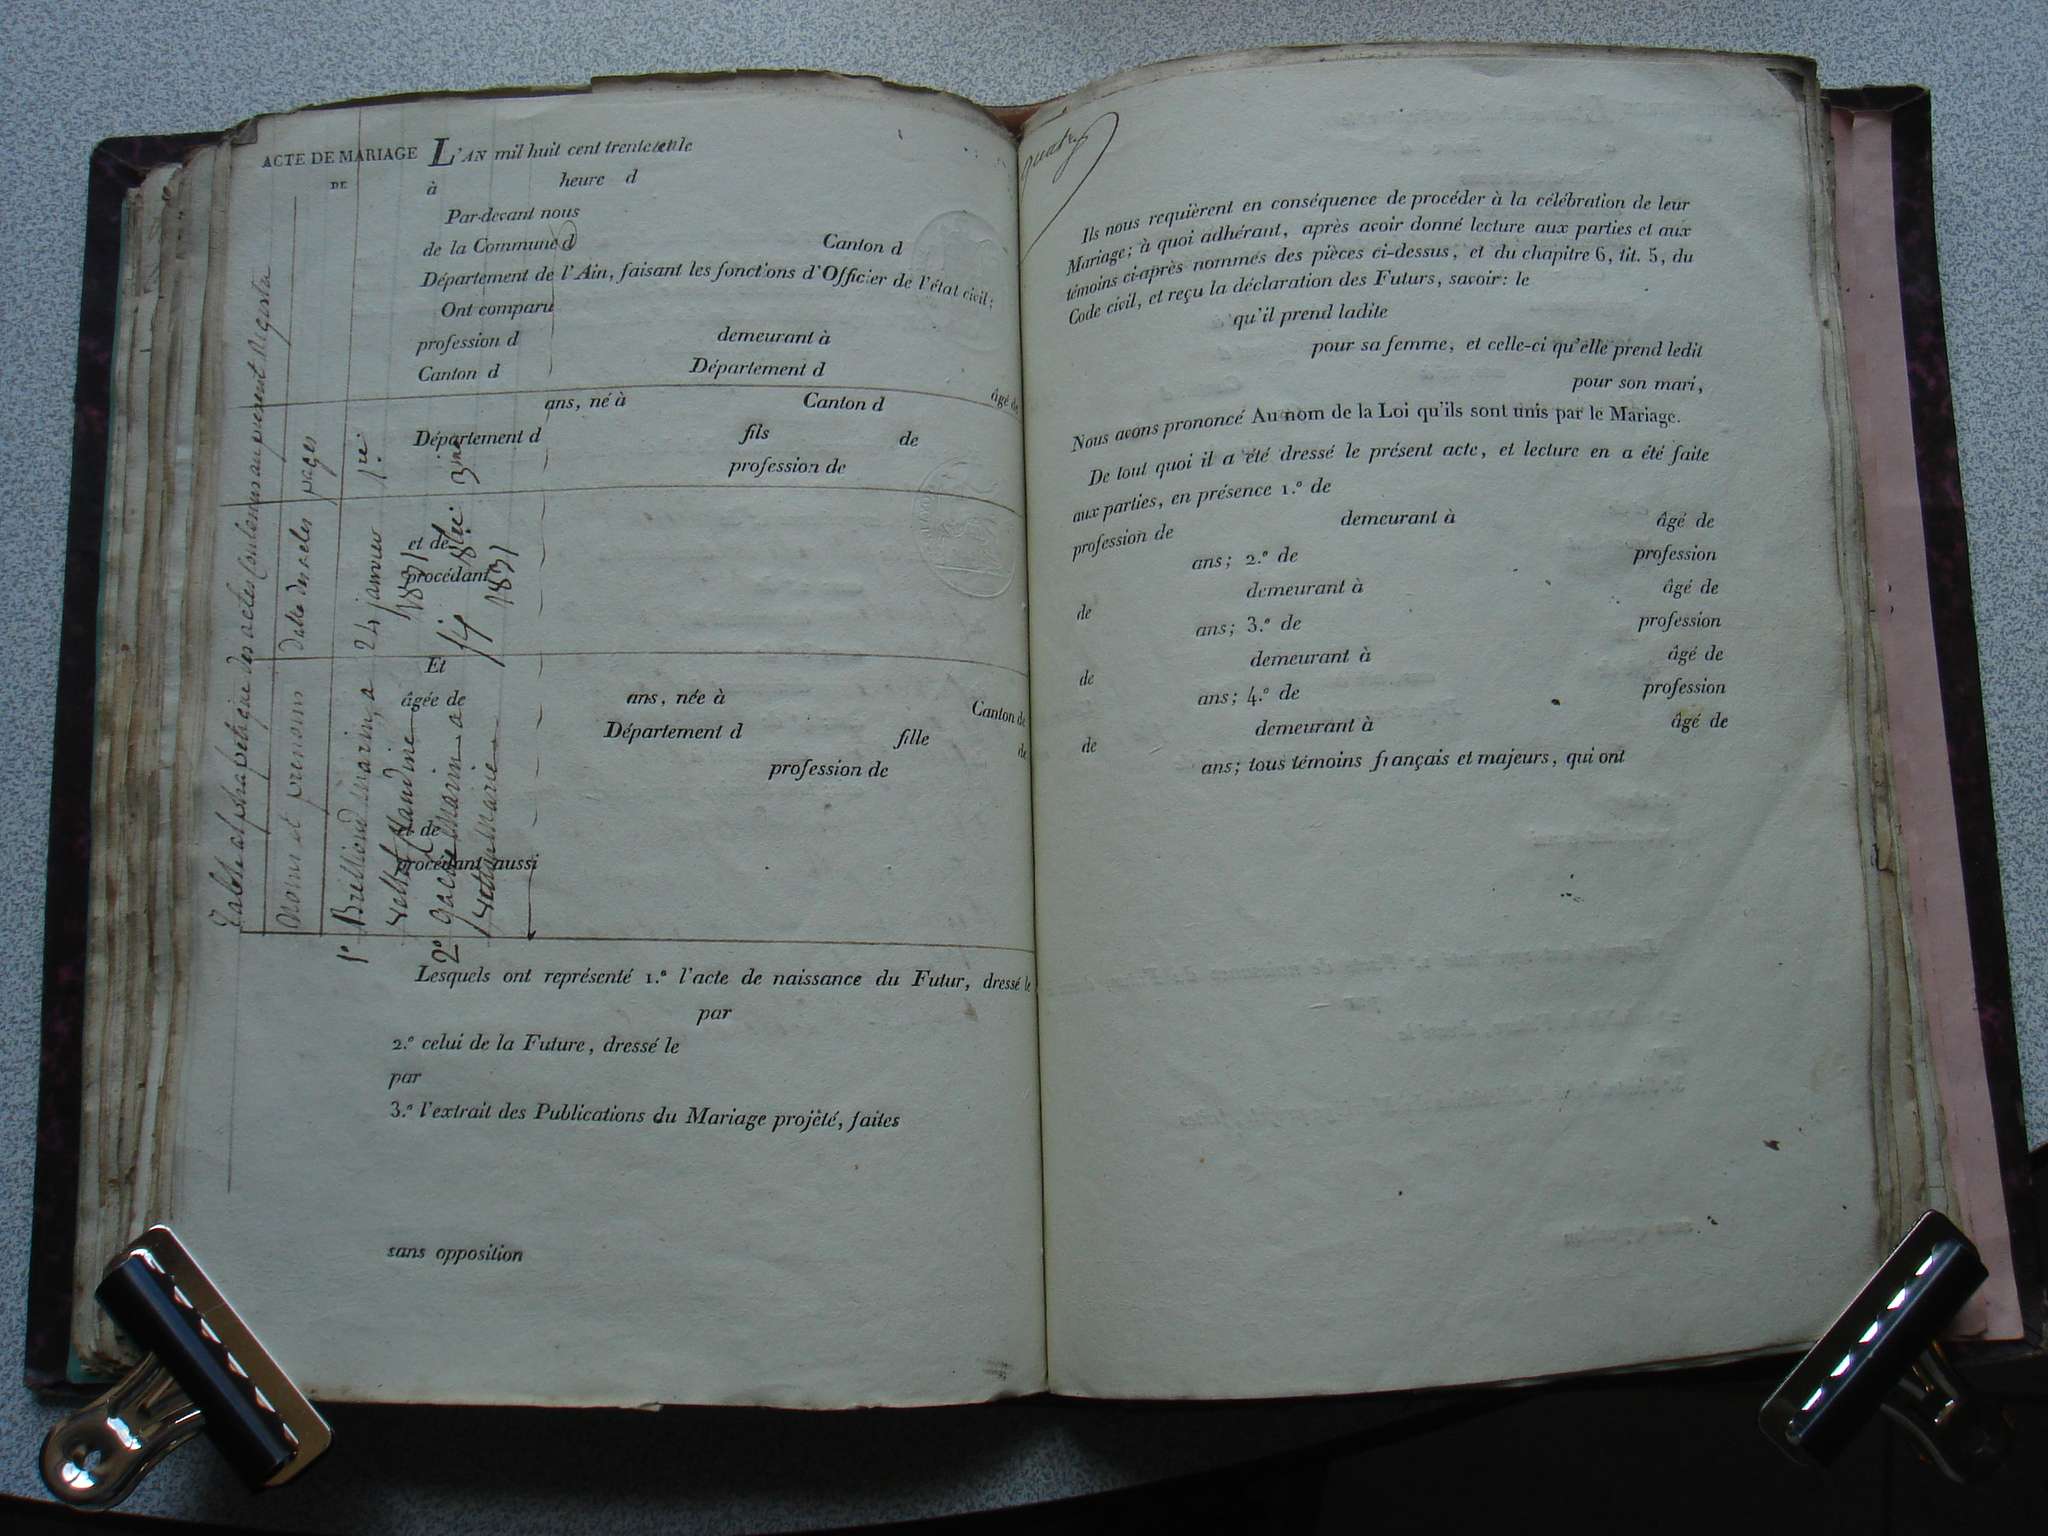 ACTE DE MARIAGE
DE
L'AN mil huit cent trente et le
à heure d
Par-devant nous
de la Commune d Canton d
Département de l'Ain, faisant les fonctions d'Officier de l'état civil;
Ont comparu
profession d demeurant à
Canton d Département d
âgé de
ans, né à Canton d
Département d fils de
profession de
et de
procédant
Et
âgée de ans, née à Canton de
Département d fille de
profession de
et de
procédant aussi
Lesquels ont représenté 1.º l'acte de naissance du Futur, dressé le
par
2.º celui de la Future, dressé le
par
3.º l'extrait des Publications du Mariage projeté, faites
sans opposition
Table alphabétique des actes Contenus au présent Registre
Noms et prenoms datte des actes pages
1º Brilliend Marin, a 24 janvier 1re
Claudine 1831
2º Marin a 8bre 3me
Marie 14 1831
quatre
Ils nous requièrent en conséquence de procéder à la célébration de leur
Mariage; à quoi adhérant, après avoir donné lecture aux parties et aux
témoins ci-après nommés des pièces ci-dessus, et du chapitre 6, tit. 5, du
Code civil, et reçu la déclaration des Futurs, savoir: le
qu'il prend ladite
pour sa femme, et celle-ci qu'elle prend ledit
pour son mari,
Nous avons prononcé Au nom de la Loi qu'ils sont unis par le Mariage.
De tout quoi il a été dressé le présent acte, et lecture en a été faite
aux parties, en présence 1.º de
profession de demeurant à âgé de
ans; 2.º de profession
de demeurant à âgé de
ans; 3.º de profession
de demeurant à âgé de
ans; 4.º de profession
de demeurant à âgé de
ans; tous témoins français et majeurs, qui ont